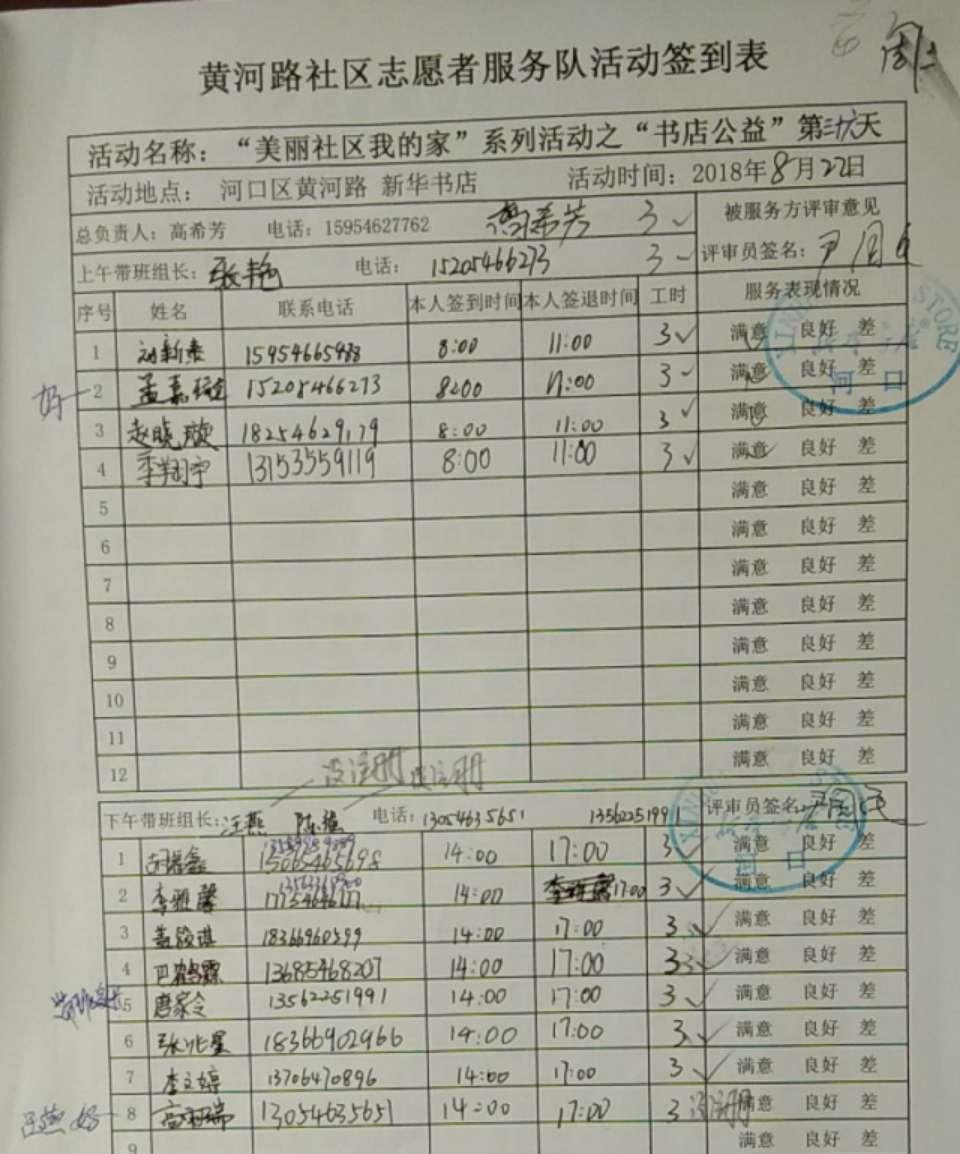 周二
黄河路社区志愿者服务队活动签到表
活动名称：“美丽社区我的家”系列活动之“书店公益”第三十六天
活动地点： 河口区黄河路 新华书店 活动时间：2018年8月22日
总负责人：高希芳 电话：15954627762 高希芳 3 ✓ 被服务方评审意见
上午带班组长：张艳 电话：15205466273 3 ✓ 评审员签名：
序号 姓名 联系电话 本人签到时间 本人签退时间 工时 服务表现情况
1 15954665988 8:00 11:00 3✓ 满意 良好 差
2 孟嘉 15205466273 8:00 11:00 3✓ 满意 良好 差
3 赵晓璇 18254629179 8:00 11:00 3✓ 满意 良好 差
4 季翔宇 13153559119 8:00 11:00 3✓ 满意 良好 差
5 满意 良好 差
6 满意 良好 差
7 满意 良好 差
8 满意 良好 差
9 满意 良好 差
10 满意 良好 差
11 满意 良好 差
12 满意 良好 差
没注册 没注册
下午带班组长：汪燕 陈 电话：13054635651 13562251991 评审员签名
1 胡 15065465698 14:00 17:00 3✓ 满意 良好 差
2 李雅馨 14:00 17:00 3✓ 满意 良好 差
3 18366960599 14:00 17:00 3✓ 满意 良好 差
4 巴 霖 13685468207 14:00 17:00 3✓ 满意 良好 差
5 唐家令 13562251991 14:00 17:00 3✓ 满意 良好 差
6 张兆星 18366902966 14:00 17:00 3✓ 满意 良好 差
7 李文婷 13706470896 14:00 17:00 3✓ 满意 良好 差
汪燕 妈 8 高 瑞 13054635651 14:00 17:00 3 没注册 满意 良好 差
9 满意 良好 差
河口
河口